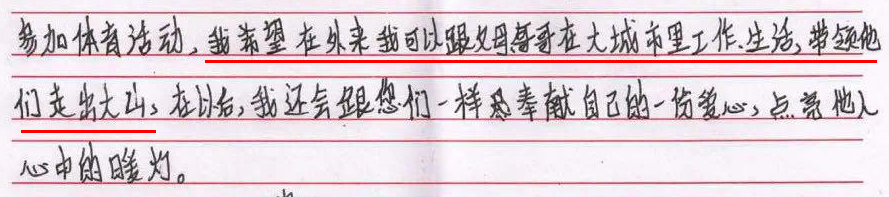 参加体育活动,我希望在外来我可以跟父母哥哥在大城市里工作、生活,带领他
们走出大山。在以后,我还会跟您们一样奉献自己的一份爱心,点亮他人
心中的暖灯。